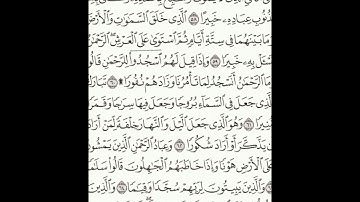 بِذُنُوبِ عِبَادِهِ خَبِيرًا ۝٥٨ ٱلَّذِى خَلَقَ ٱلسَّمَٰوَٰتِ وَٱلْأَرْضَ
وَمَا بَيْنَهُمَا فِى سِتَّةِ أَيَّامٍ ثُمَّ ٱسْتَوَىٰ عَلَى ٱلْعَرْشِ ٱلرَّحْمَٰنُ
فَسْـَٔلْ بِهِۦ خَبِيرًا ۝٥٩ وَإِذَا قِيلَ لَهُمُ ٱسْجُدُوا۟ لِلرَّحْمَٰنِ قَالُوا۟
وَمَا ٱلرَّحْمَٰنُ أَنَسْجُدُ لِمَا تَأْمُرُنَا وَزَادَهُمْ نُفُورًا ۩ ۝٦٠ تَبَارَكَ
ٱلَّذِى جَعَلَ فِى ٱلسَّمَآءِ بُرُوجًا وَجَعَلَ فِيهَا سِرَٰجًا وَقَمَرًا
مُّنِيرًا ۝٦١ وَهُوَ ٱلَّذِى جَعَلَ ٱلَّيْلَ وَٱلنَّهَارَ خِلْفَةً لِّمَنْ أَرَادَ
أَن يَذَّكَّرَ أَوْ أَرَادَ شُكُورًا ۝٦٢ وَعِبَادُ ٱلرَّحْمَٰنِ ٱلَّذِينَ يَمْشُونَ
عَلَى ٱلْأَرْضِ هَوْنًا وَإِذَا خَاطَبَهُمُ ٱلْجَٰهِلُونَ قَالُوا۟ سَلَٰمًا
۝٦٣ وَٱلَّذِينَ يَبِيتُونَ لِرَبِّهِمْ سُجَّدًا وَقِيَٰمًا ۝٦٤ وَٱلَّذِينَ